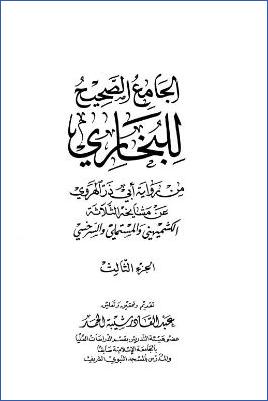 الجامع الصحيح
للبخاري
من رواية أبي ذر الهروي
عن مشايخه الثلاثة
الكشميهني والمستملي والسرخسي
الجزء الثالث
تقديم وتحقيق وتعليق
عبد القادر شيبة الحمد
عضو هيئة التدريس بقسم الدراسات العليا
بالجامعة الإسلامية سابقا
والمدرس بالمسجد النبوي الشريف